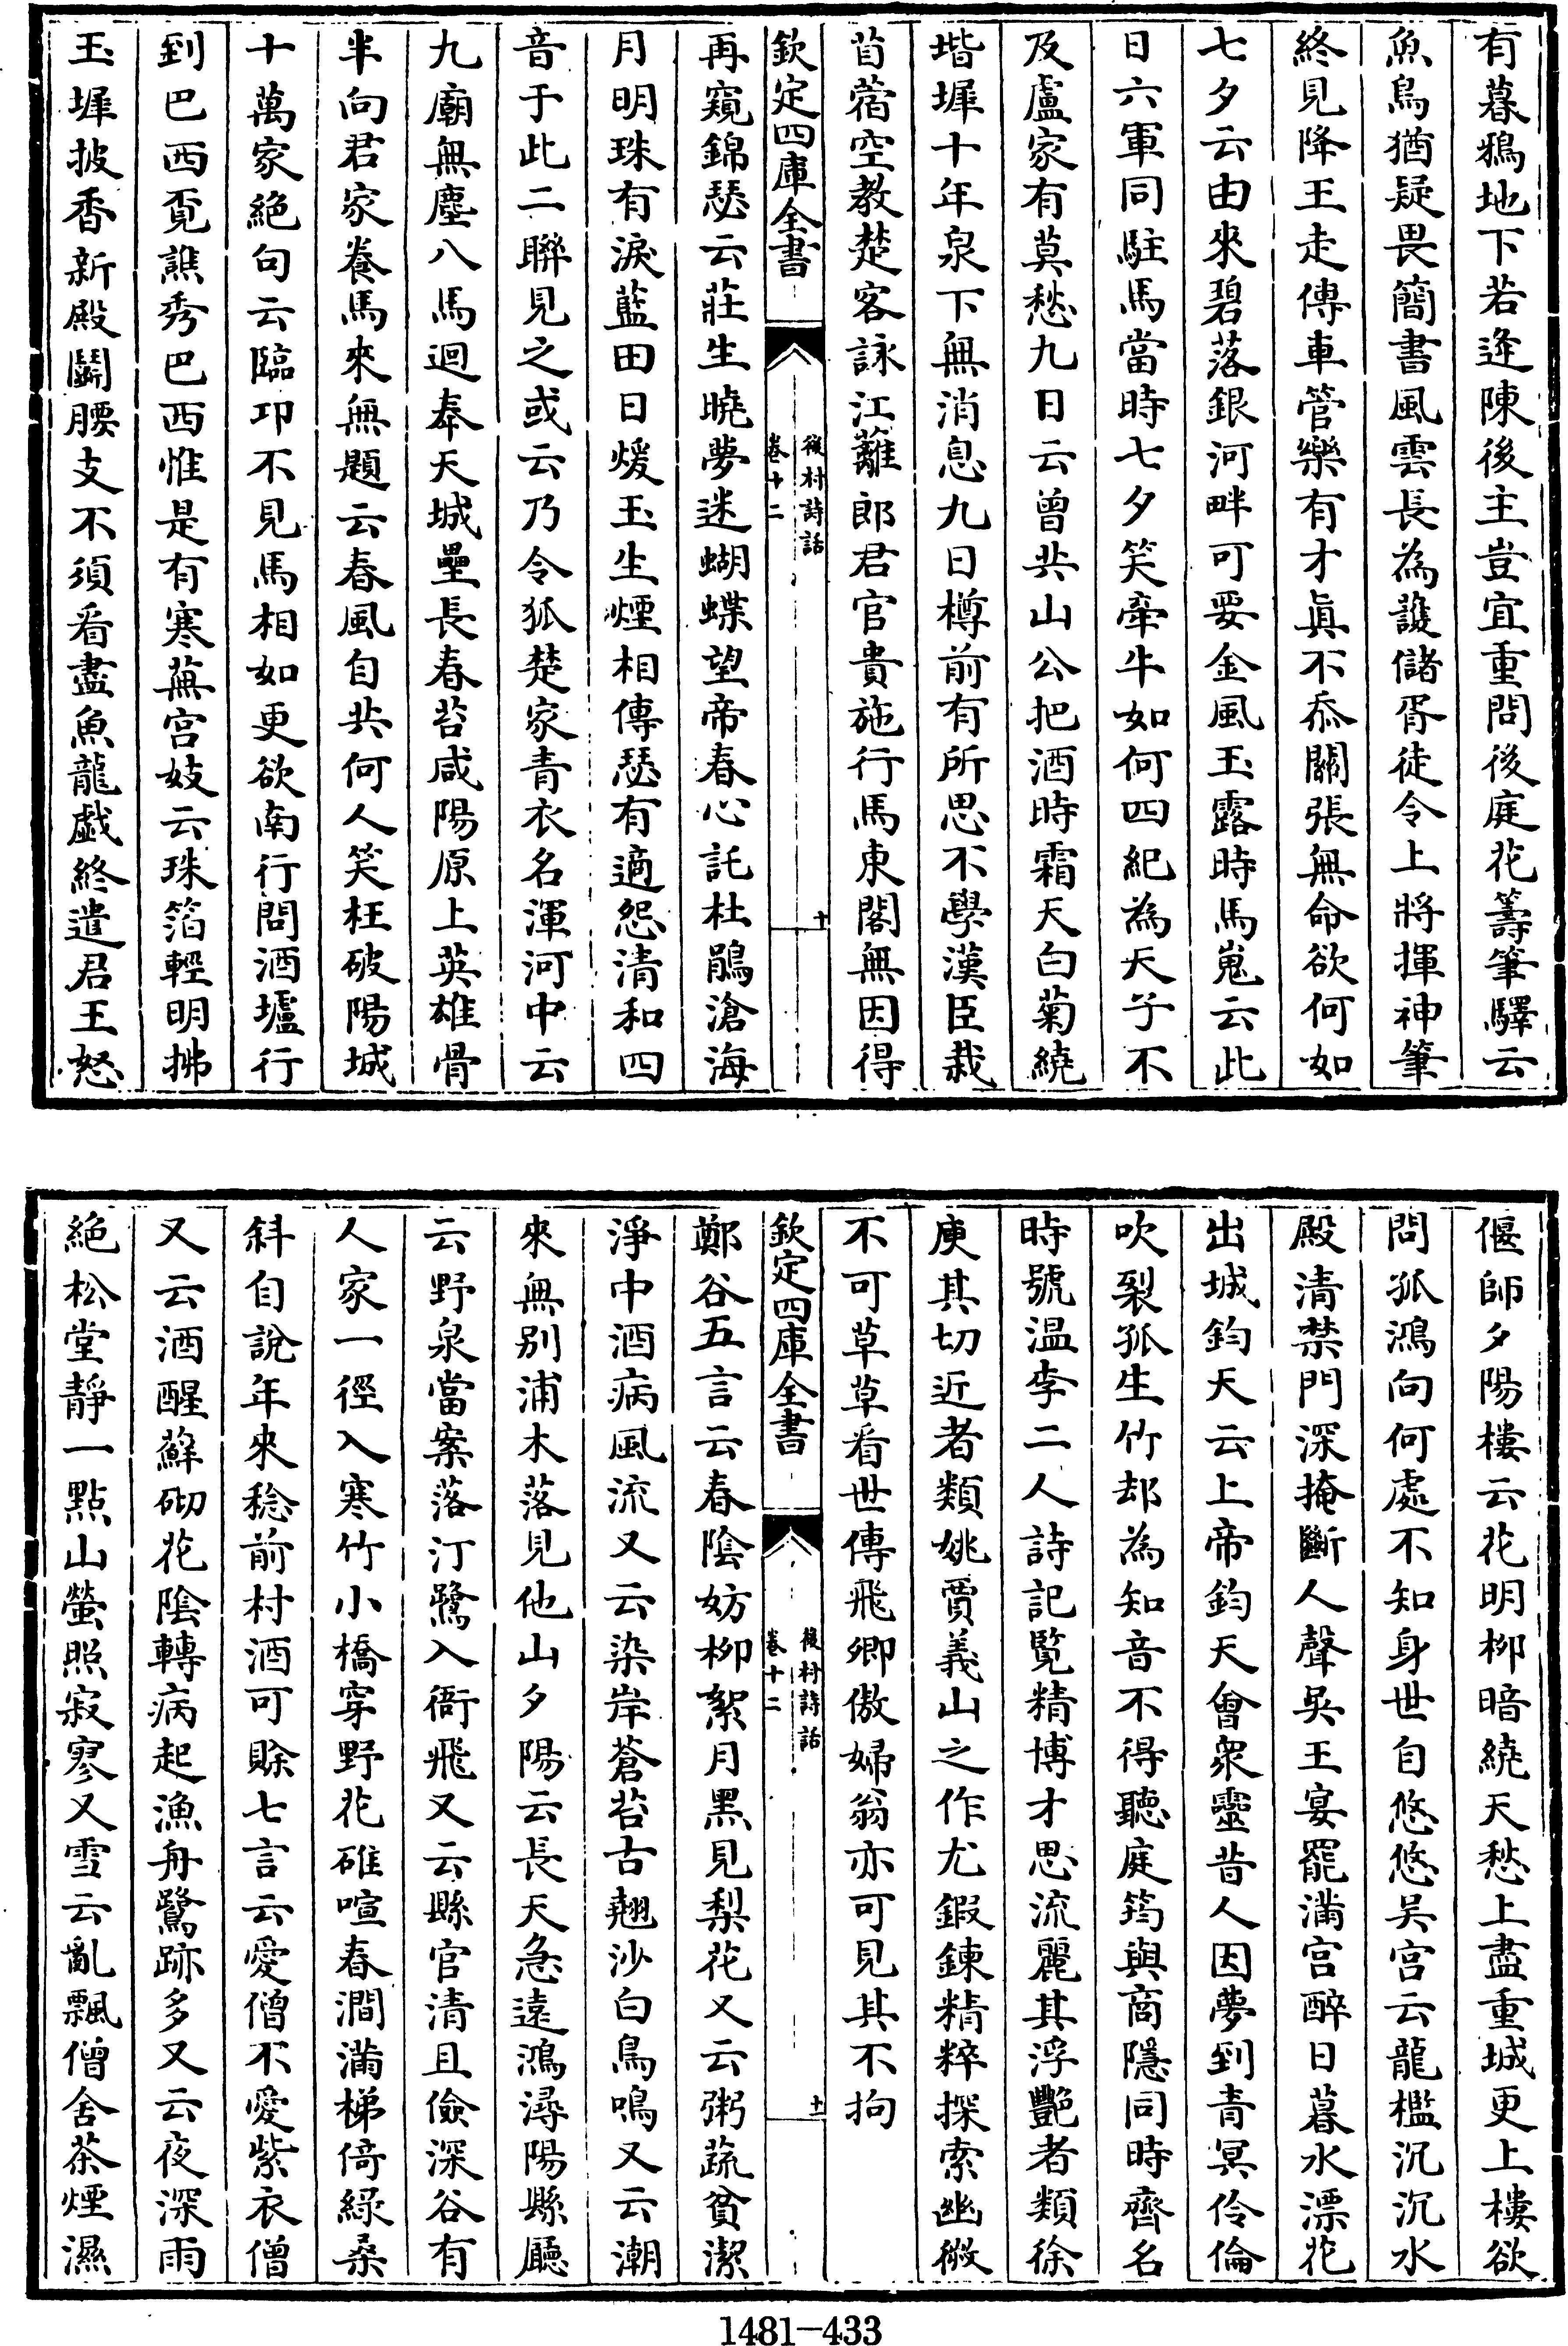 有暮鴉地下若逢陳後主豈宜重問後庭花籌筆驛云
魚鳥猶疑畏簡書風雲長為護儲胥徒令上將揮神筆
終見降王走傳車管樂有才真不忝關張無命欲何如
七夕云由來碧落銀河畔可要金風玉露時馬嵬云此
日六軍同駐馬當時七夕笑牽牛如何四紀為天子不
及盧家有莫愁九日云曾共山公把酒時霜天白菊繞
堦墀十年泉下無消息九日樽前有所思不學漢臣栽
苜蓿空教楚客詠江蘺郎君官貴施行馬東閣無因得
欽定四庫全書
後村詩話
卷十二
十
再窺錦瑟云莊生曉夢迷蝴蝶望帝春心託杜鵑滄海
月明珠有淚藍田日煖玉生煙相傳瑟有適怨清和四
音于此二聯見之或云乃令狐楚家青衣名渾河中云
九廟無塵八馬迴奉天城壘長春苔咸陽原上英雄骨
半向君家養馬來無題云春風自共何人笑枉破陽城
十萬家絕句云臨邛不見馬相如更欲南行問酒壚行
到巴西覓譙秀巴西惟是有寒蕪宮妓云珠箔輕明拂
玉墀披香新殿鬭腰支不須看盡魚龍戲終遣君王怒
偃師夕陽樓云花明柳暗繞天愁上盡重城更上樓欲
問孤鴻向何處不知身世自悠悠吳宮云龍檻沉沉水
殿清禁門深掩斷人聲吳王宴罷滿宮醉日暮水漂花
出城鈞天云上帝鈞天會衆靈昔人因夢到青冥伶倫
吹裂孤生竹却為知音不得聽庭筠與商隱同時齊名
時號温李二人詩記覽精博才思流麗其浮艷者類徐
庾其切近者類姚賈義山之作尤鍛鍊精粹探索幽微
不可草草看世傳飛卿傲婦翁亦可見其不拘
欽定四庫全書
後村詩話
卷十二
十一
鄭谷五言云春陰妨柳絮月黑見梨花又云粥蔬貧潔
淨中酒病風流又云染岸蒼苔古翹沙白鳥鳴又云潮
來無別浦木落見他山夕陽云長天急遠鴻潯陽縣廳
云野泉當案落汀鷺入衙飛又云縣官清且儉深谷有
人家一徑入寒竹小橋穿野花碓喧春澗滿梯倚緑桑
斜自說年來稔前村酒可賒七言云愛僧不愛紫衣僧
又云酒醒蘚砌花陰轉病起漁舟鷺跡多又云夜深雨
絕松堂靜一點山螢照寂寥又雪云亂飄僧舍茶煙濕
1481-433